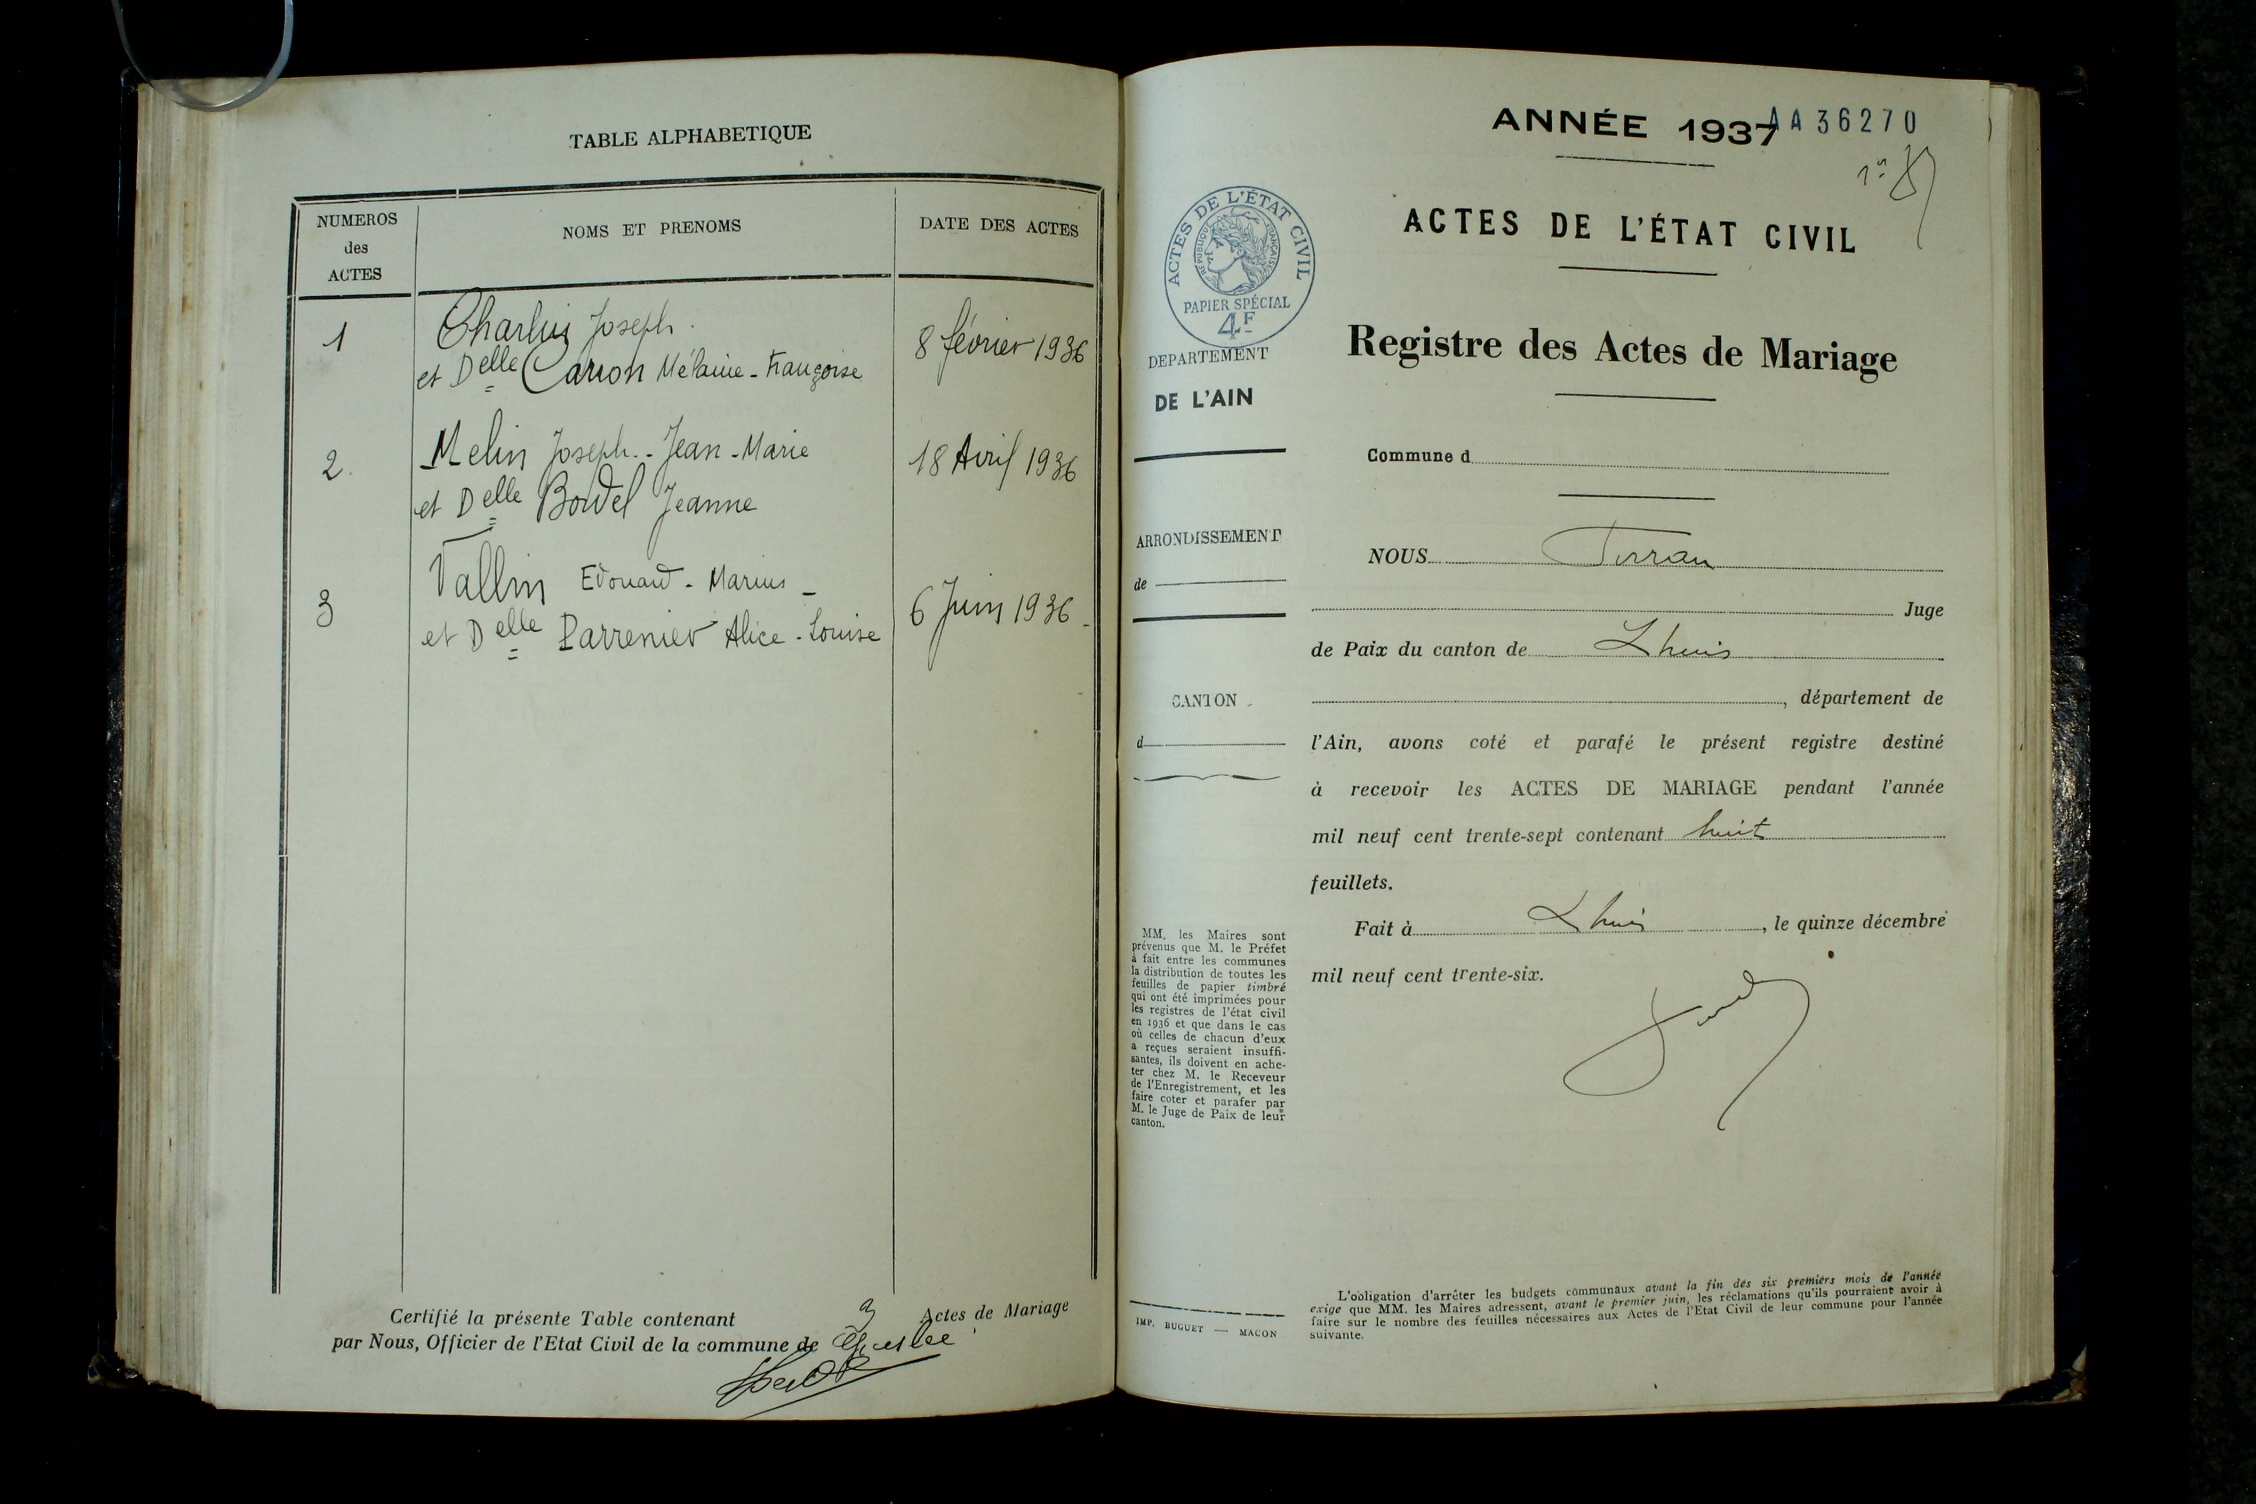 TABLE ALPHABETIQUE
NUMEROS
des
ACTES
NOMS ET PRENOMS
DATE DES ACTES
1
Charlin Joseph
et Delle Carron Mélanie - Françoise
8 février 1936
2.
Melin Joseph - Jean - Marie
et Delle Bordel Jeanne
18 Avril 1936
3
Vallin Edouard - Marius -
et Delle Parrenier Alice - Louise
6 Juin 1936 -
Certifié la présente Table contenant 3 Actes de Mariage
par Nous, Officier de l'Etat Civil de la commune de
ANNÉE 1937
AA36270
ACTES DE L'ÉTAT CIVIL
RÉPUBLIQUE FRANÇAISE
PAPIER SPÉCIAL
4F
DEPARTEMENT
DE L'AIN
ARRONDISSEMENT
de
CANTON
d
MM. les Maires sont
prévenus que M. le Préfet
à fait entre les communes
la distribution de toutes les
feuilles de papier timbré
qui ont été imprimées pour
les registres de l'état civil
en 1936 et que dans le cas
où celles de chacun d'eux
a reçues seraient insuffi-
santes, ils doivent en ache-
ter chez M. le Receveur
de l'Enregistrement, et les
faire coter et parafer par
M. le Juge de Paix de leur
canton.
IMP. BUGUET — MACON
ACTES DE L'ÉTAT CIVIL
Registre des Actes de Mariage
Commune d
NOUS
Juge
de Paix du canton de Lhuis
, département de
l'Ain, avons coté et parafé le présent registre destiné
à recevoir les ACTES DE MARIAGE pendant l'année
mil neuf cent trente-sept contenant huit
feuillets.
Fait à Lhuis, le quinze décembre
mil neuf cent trente-six.
L'obligation d'arrêter les budgets communaux avant la fin des six premiers mois de l'année
exige que MM. les Maires adressent, avant le premier juin, les réclamations qu'ils pourraient avoir à
faire sur le nombre des feuilles nécessaires aux Actes de l'Etat Civil de leur commune pour l'année
suivante.